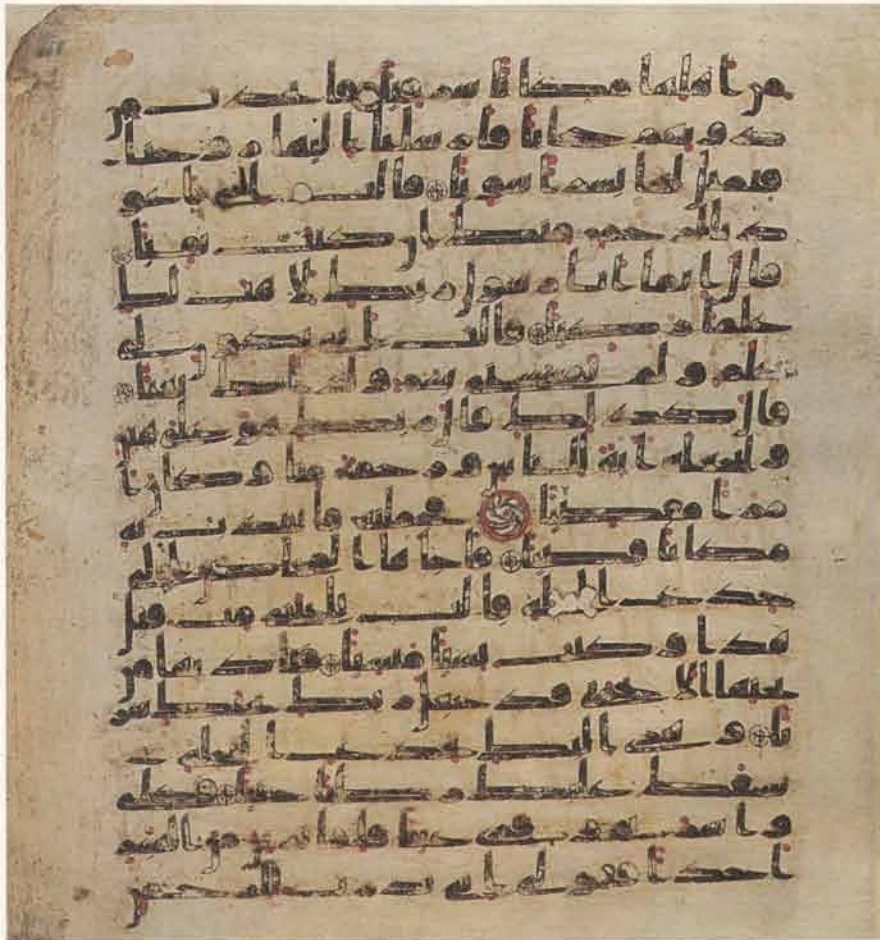 من اهلها مكانا شرقيا فاتخذت من
دونهم حجابا فارسلنا اليها روحنا
فتمثل لها بشرا سويا قالت اني اعو
ذ بالرحمن منك ان كنت تقيا
قال انما انا رسول ربك لاهب لك
غلما زكيا قالت انى يكون لي
غلم ولم يمسسني بشر ولم اك بغيا
قال كذلك قال ربك هو علي هين
ولنجعله اية للناس ورحمة منا وكان ا
مرا مقضيا فحملته فانتبذت به
مكانا قصيا فاجاها المخاض الى
جذع النخلة قالت يليتني مت قبل
هذا وكنت نسيا منسيا فناديها من
تحتها الا تحزني قد جعل ربك تحتك سر
يا وهزي اليك بجذع النخلة ت
سقط عليك رطبا جنيا فكلي
واشربي وقري عينا فاما ترين من البشر
احدا فقولي اني نذرت للرحمن